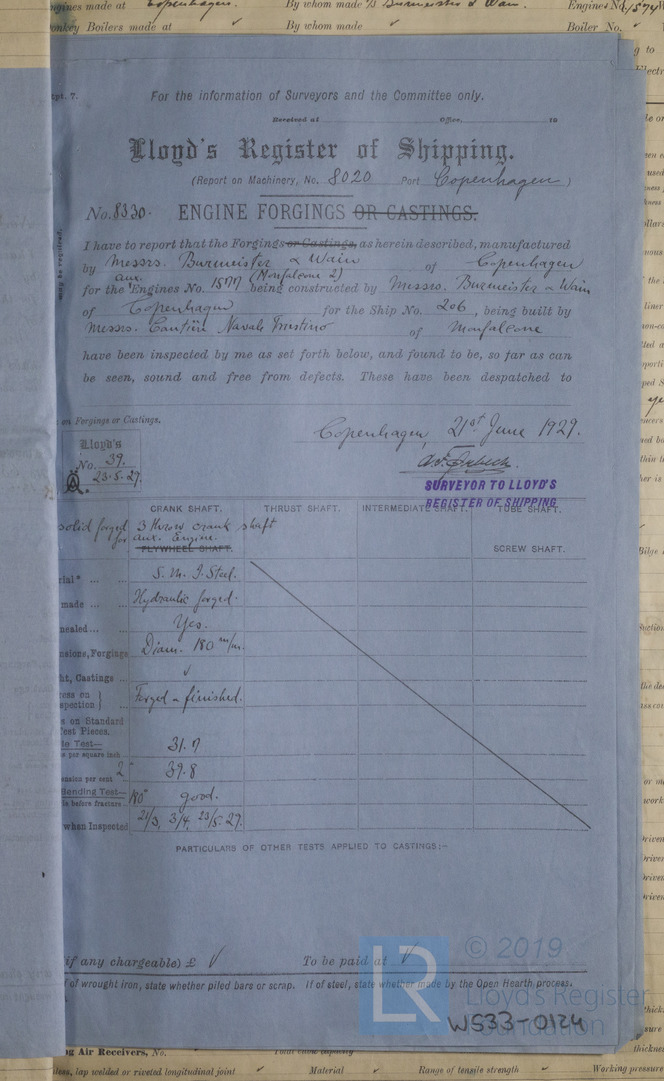 ngines made at Copenhagen. By whom made Burmeister & Wain. Engines No. 1577
onkey Boilers made at ✓ By whom made ✓ Boiler No. ✓
Rpt. 7.
For the information of Surveyors and the Committee only.
Received at Office, 19
Lloyd's Register of Shipping.
(Report on Machinery, No. 8020 Port Copenhagen)
No. 8330. ENGINE FORGINGS OR CASTINGS.
I have to report that the Forgings or Castings, as herein described, manufactured
by Messrs. Burmeister & Wain of Copenhagen
for the aux. Engines No. 1577 (Monfalcone 2) being constructed by Messrs. Burmeister & Wain
of Copenhagen for the Ship No. 206, being built by
Messrs. Cantiere Navale Triestino of Monfalcone
have been inspected by me as set forth below, and found to be, so far as can
be seen, sound and free from defects. These have been despatched to
on Forgings or Castings.
Copenhagen, 21st June 1929.
Lloyd's
No. 39.
23.5.27.
SURVEYOR TO LLOYD'S
REGISTER OF SHIPPING
CRANK SHAFT. THRUST SHAFT. INTERMEDIATE SHAFT. TUBE SHAFT.
solid forged 3 throw crank shaft
for aux. Engine.
FLYWHEEL SHAFT. SCREW SHAFT.
rial* ... ... S. M. I. Steel.
made ... ... Hydraulic forged.
nealed ... ... Yes.
nsions, Forgings Diam. 180 m/m.
ht, Castings ... ✓
ress on
spection Forged & finished.
s on Standard
Test Pieces.
le Test—
s per square inch 31.7
ension per cent 2" 39.8
Bending Test— 180° good.
le before fracture
when Inspected 21/3, 3/4, 23/5.27.
PARTICULARS OF OTHER TESTS APPLIED TO CASTINGS:—
if any chargeable) £ ✓ To be paid at ✓
f of wrought iron, state whether piled bars or scrap. If of steel, state whether made by the Open Hearth process.
© 2019
LR
Lloyd's Register
Foundation
W533-0124
ng Air Receivers, No. Total cubic capacity
less, lap welded or riveted longitudinal joint ✓ Material ✓ Range of tensile strength ✓ Working pressure